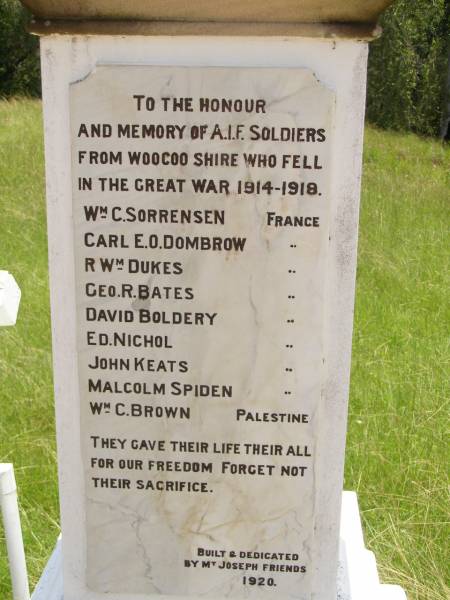 TO THE HONOUR
AND MEMORY OF A.I.F. SOLDIERS
FROM WOOCOO SHIRE WHO FELL
IN THE GREAT WAR 1914-1918.
WM C. SORRENSEN FRANCE
CARL E.O. DOMBROW "
R WM DUKES "
GEO. R. BATES "
DAVID BOLDERY "
ED. NICHOL "
JOHN KEATS "
MALCOLM SPIDEN "
WM C. BROWN PALESTINE
THEY GAVE THEIR LIFE THEIR ALL
FOR OUR FREEDOM FORGET NOT
THEIR SACRIFICE.
BUILT & DEDICATED
BY MT JOSEPH FRIENDS
1920.